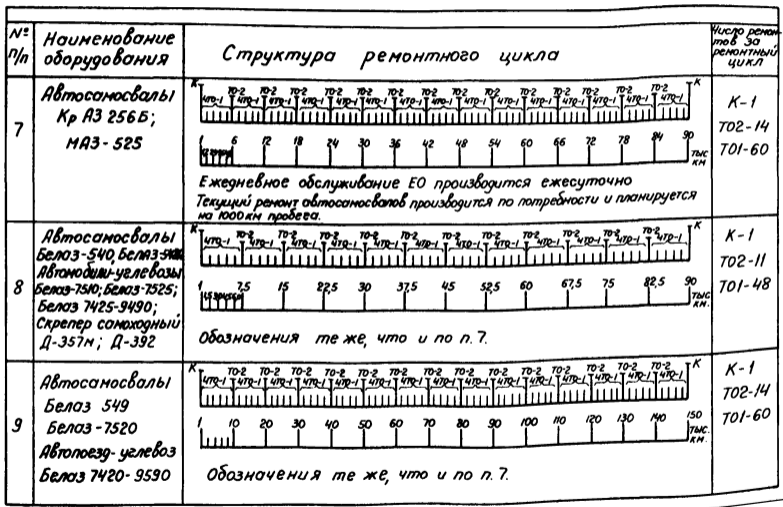 № п/п
Наименование оборудования
Структура ремонтного цикла
Число ремонтов за ремонтный цикл
7
Автосамосвалы
КрАЗ 256Б;
МАЗ-525
К ТО-2 ТО-2 ТО-2 ТО-2 ТО-2 ТО-2 ТО-2 ТО-2 ТО-2 ТО-2 ТО-2 ТО-2 ТО-2 ТО-2 К
4ТО-1 4ТО-1 4ТО-1 4ТО-1 4ТО-1 4ТО-1 4ТО-1 4ТО-1 4ТО-1 4ТО-1 4ТО-1 4ТО-1 4ТО-1 4ТО-1 4ТО-1
1 6 12 18 24 30 36 42 48 54 60 66 72 78 84 90
тыс км
Ежедневное обслуживание ЕО производится ежесуточно
Текущий ремонт автосамосвалов производится по потребности и планируется
на 1000 км пробега.
К-1
ТО2-14
ТО1-60
8
Автосамосвалы
Белаз-540,
Автомобили-углевозы
Белаз-7510; Белаз-7525;
Белаз 7425-9490;
Скрепер самоходный
Д-357м; Д-392
К ТО-2 ТО-2 ТО-2 ТО-2 ТО-2 ТО-2 ТО-2 ТО-2 ТО-2 ТО-2 ТО-2 К
4ТО-1 4ТО-1 4ТО-1 4ТО-1 4ТО-1 4ТО-1 4ТО-1 4ТО-1 4ТО-1 4ТО-1 4ТО-1 4ТО-1
1 7,5 15 22,5 30 37,5 45 52,5 60 67,5 75 82,5 90
тыс км
Обозначения те же, что и по п. 7.
К-1
ТО2-11
ТО1-48
9
Автосамосвалы
Белаз 549
Белаз-7520
Автопоезд-углевоз
Белаз 7420-9590
К ТО-2 ТО-2 ТО-2 ТО-2 ТО-2 ТО-2 ТО-2 ТО-2 ТО-2 ТО-2 ТО-2 ТО-2 ТО-2 ТО-2 К
4ТО-1 4ТО-1 4ТО-1 4ТО-1 4ТО-1 4ТО-1 4ТО-1 4ТО-1 4ТО-1 4ТО-1 4ТО-1 4ТО-1 4ТО-1 4ТО-1 4ТО-1
1 10 20 30 40 50 60 70 80 90 100 110 120 130 140 150
тыс. км.
Обозначения те же, что и по п. 7.
К-1
ТО2-14
ТО1-60